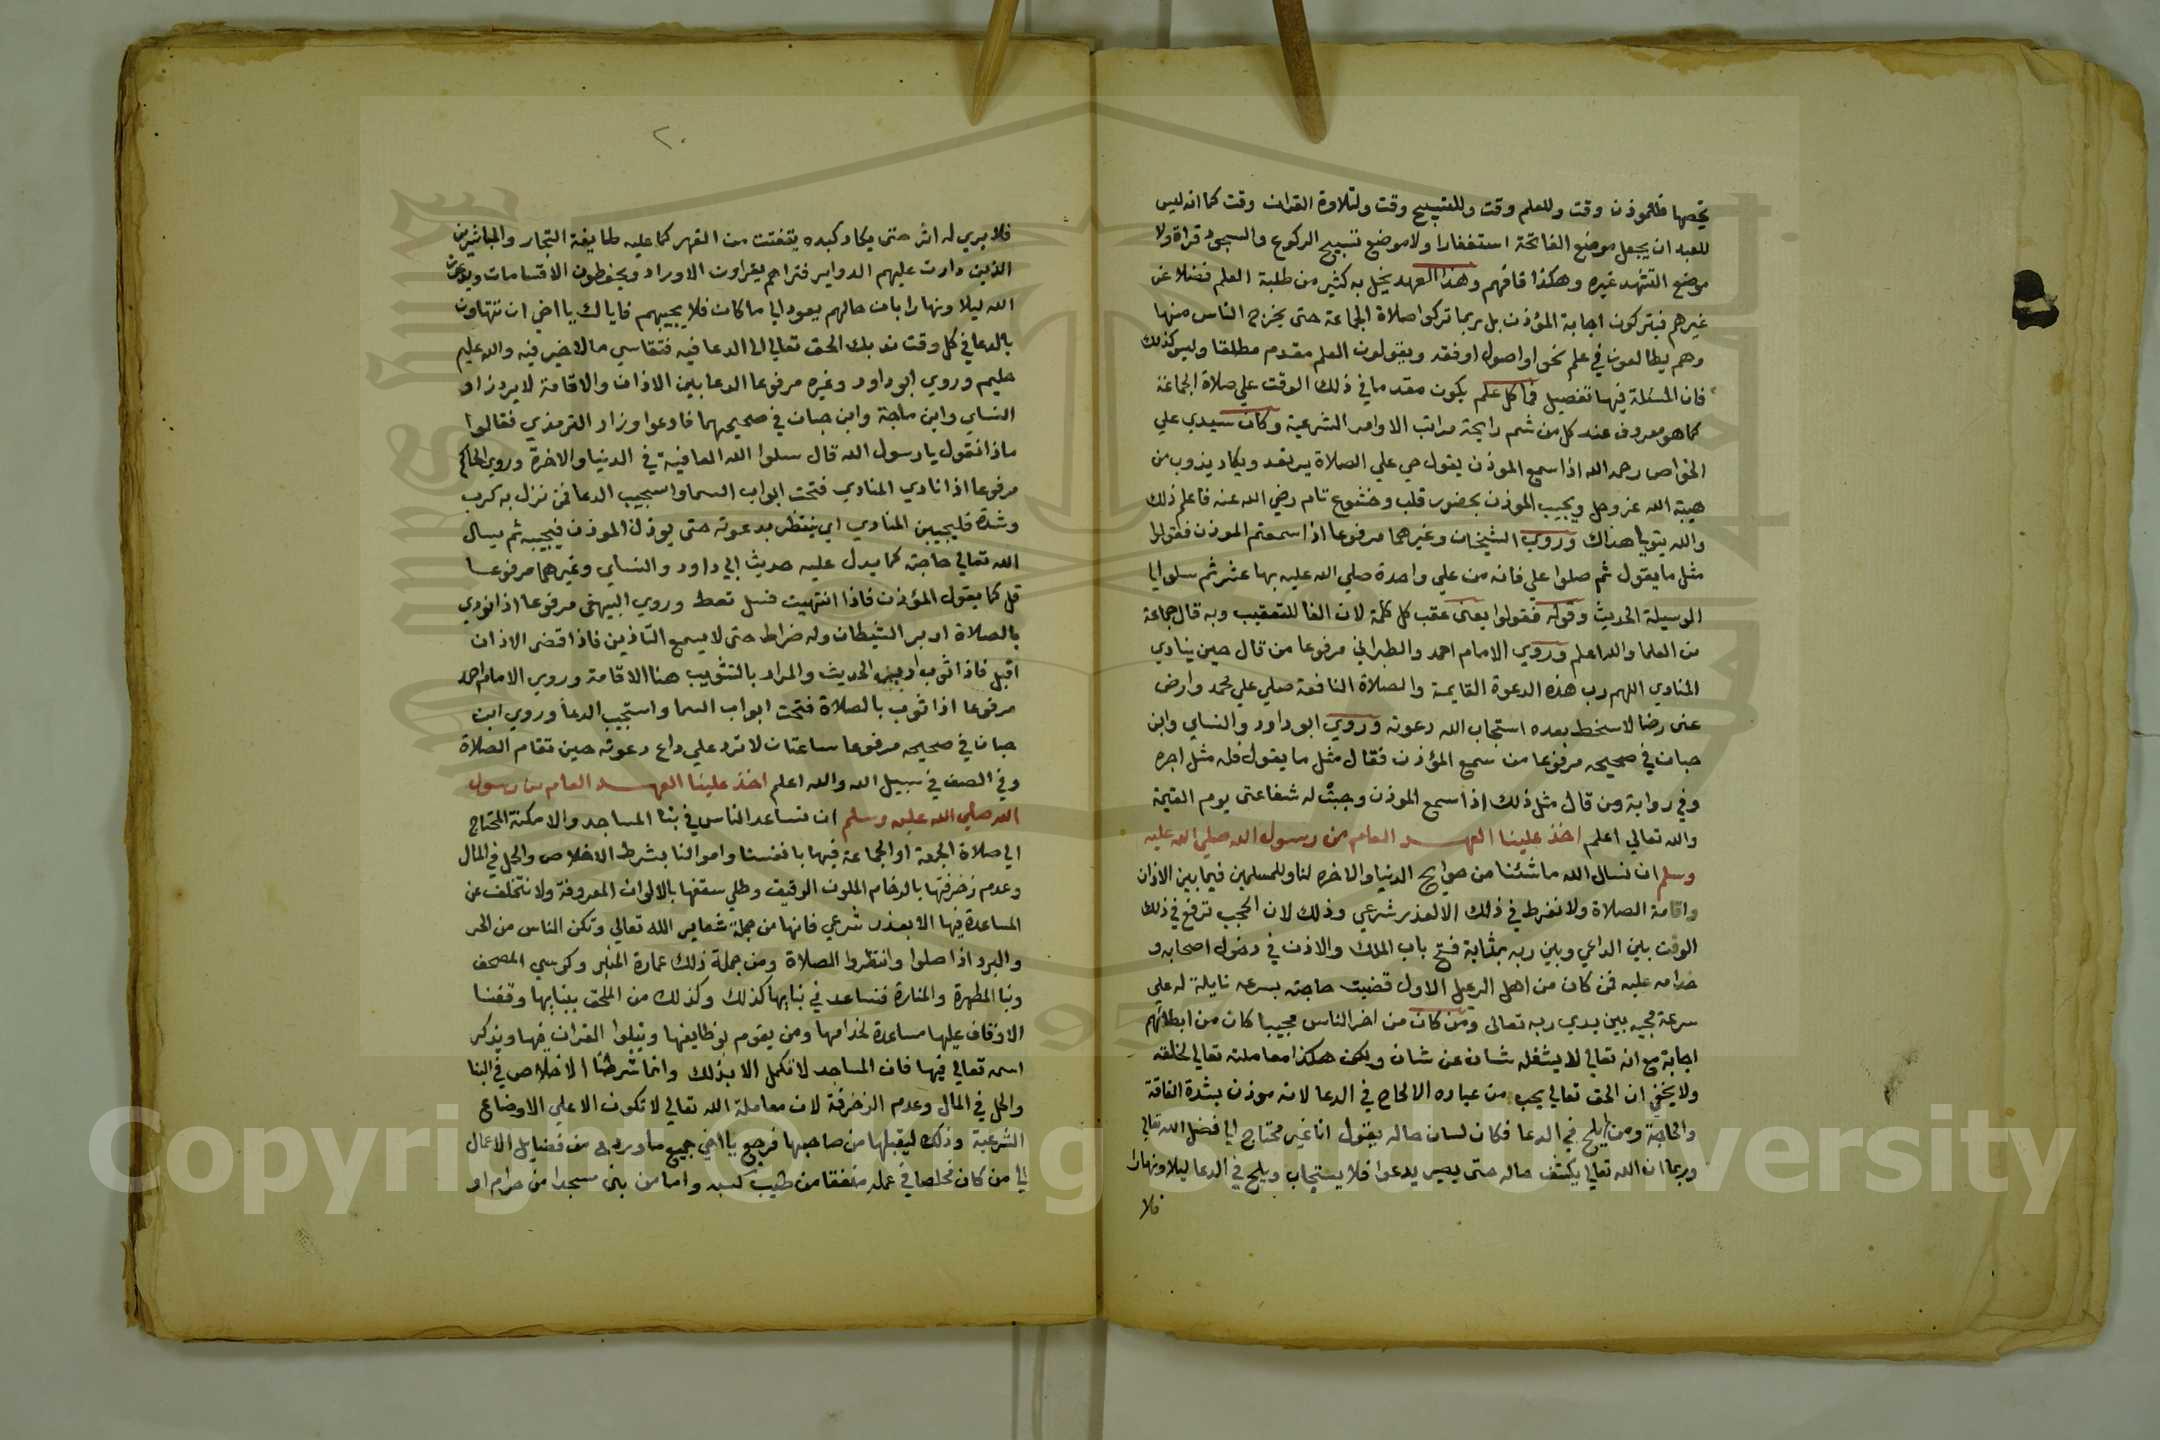 يخصها فللموذن وقت وللعلم وقت وللتسبيح وقت ولتلاوة القران وقت كما انه ليس
للعبد ان يجعل موضع الفاتحة استغفارا ولا موضع تسبيح الركوع والسجود قراة ولا
موضع التشهد غيره وهكذا فافهم وهذا العهد يخل به كثير من طلبة العلم فضلا عن
غيرهم فيتركون اجابة المؤذن بل ربما تركوا صلاة الجماعة حتى يخرج الناس منها
وهم يطالعون في علم نحو او اصول او فقه ويقولون العلم مقدم مطلقا وليس كذلك
فان المسئلة فيها تفصيل فما كل علم يكون مقدما في ذلك الوقت علي صلاة الجماعة
كما هو معروف عند كل من شم رايحة مراتب الاوامر الشرعية وكان سيدي علي
الخواص رحمه الله اذا سمع الموذن يقول حي علي الصلاة يرتعد ويكاد يذوب من
هيبة الله عز وجل ويجيب الموذن بحضور قلب وخشوع تام رضي الله عنه فاعلم ذلك
والله يتولي هداك وروي الشيخان وغيرهما مرفوعا اذا سمعتم الموذن فقولوا
مثل ما يقول ثم صلوا علي فانه من علي واحدة صلي الله عليه بها عشر ثم سلوا لي
الوسيلة الحديث وقوله فقولوا يعني عقب كل كلمة لان الفا للتعقيب وبه قال جماعة
من العلما والله اعلم وروي الامام احمد والطبراني مرفوعا من قال حين ينادي
المنادي اللهم رب هذه الدعوة القايمة والصلاة النافعة صلي علي محمد وارض
عنى رضا لا سخط بعده استجاب الله دعوته وروي ابو داود والنساي وابن
حبان في صحيحه مرفوعا من سمع المؤذن فقال مثل ما يقول فله مثل اجره
وفي رواية ومن قال مثل ذلك اذا سمع الموذن وجبت له شفاعتى يوم القيمة
والله تعالي اعلم اخذ علينا العهد العام من رسول الله صلي الله عليه
وسلم ان نسال الله ما شئنا من حوايج الدنيا والاخره لنا وللمسلمين فيما بين الاذان
واقامة الصلاة ولا نفرط في ذلك الا لعذر شرعي وذلك لان الحجب ترفع في ذلك
الوقت بين الداعي وبين ربه بمثابة فتح باب الملك والاذن في دخول اصحابه و
خدامه عليه فمن كان من اهل الرعيل الاول قضيت حاجته بسرعه نايلة له علي
سرعة مجيه بين يدي ربه تعالى ومن كان من اخر الناس مجيبا كان من ابطائهم
اجابة مع انه تعالي لا يشغله شان عن شان ولكن هكذا معاملته تعالي لخلقه
ولا يخفي ان الحق تعالي يحب من عباده الالحاح في الدعا لانه موذن بشدة الفاقة
والحاجة ومن لم يلح في الدعا فكان لسان حاله يقول انا غير محتاج الي فضل الله تعالي
وربما ان الله تعالي يكشف حاله حتى يصير يدعوا فلا يستجاب ويلح في الدعا ليلا ونهارا
فلا
٢٠
فلا يري له اثر حتى يكاد كبده يتفتت من القهر كما عليه طايفة التجار والمباشرين
الذين دارت عليهم الدواير فتراهم يقراون الاوراد ويحفظون الاقسامات ويدعون
الله ليلا ونهارا بان حالهم يعود الي ما كان فلا يجيبهم فاياك يا اخي ان تتهاون
بالدعا في كل وقت ندبك الحق تعالي الى الدعا فيه فتقاسي ما لا خير فيه والله عليم
حليم وروي ابو داود وغيره مرفوعا الدعا بين الاذان والاقامة لا يرد زاد
النساي وابن ماجة وابن حبان في صحيحهما فادعوا وزاد الترمذي فقالوا
ماذا نقول يا رسول الله قال سلوا الله العافية في الدنيا والاخرة وروي الحاكم
مرفوعا اذا نادي المنادي فتحت ابواب السما واستجيب الدعا فمن نزل به كرب
وشدة فليجيبن المنادي اي ينتظر بدعوته حتى يوذن الموذن فيجيبه ثم يسال
الله تعالي حاجته كما يدل عليه حديث ابي داود والنساي وغيرهما مرفوعا
قل كما يقول المؤذن فاذا انتهيت فسل تعط وروي البيهقى مرفوعا اذا نودي
بالصلاة ادبر الشيطان وله ضراط حتى لا يسمع التاذين فاذا قضى الاذان
اقبل فاذا ثوب ادبر الحديث والمراد بالتثويب هنا الاقامة وروي الامام احمد
مرفوعا اذا ثوب بالصلاة فتحت ابواب السما واستجيب الدعا وروي ابن
حبان في صحيحه مرفوعا ساعتان لا ترد علي داع دعوته حين تقام الصلاة
وفي الصف في سبيل الله والله اعلم اخذ علينا العهد العام من رسول
الله صلي الله عليه وسلم ان نساعد الناس في بنا المساجد والامكنة المحتاج
الي صلاة الجمعة او الجماعة فيها بانفسنا واموالنا بشرط الاخلاص والحل في المال
وعدم زخرفتها بالرخام الملون الرقيق وطلي سقفها بالالوان المعروفة ولا نتخلف عن
المساعدة فيها الا بعذر شرعي فانها من جملة شعاير الله تعالي وتكن الناس من الحر
والبرد اذا صلوا وانتظروا الصلاة ومن جملة ذلك عمارة المنبر وكرسي المصحف
وبنا المطهرة والمنارة فنساعد في بنايها كذلك وكذلك من الملحق ببنايها وقفنا
الاوقاف عليها مساعدة لخدامها ومن يقوم بوظايفها ويتلوا القران فيها ويذكر
اسمه تعالي فيها فان المساجد لا تكمل الا بذلك وانما شرطنا الاخلاص في البنا
والحل في المال وعدم الزخرفة لان معاملة الله تعالي لا تكون الا علي الاوضاع
الشرعية وذلك ليقبلها من صاحبها فرجع يا اخي جميع ما ورد في من فضايل الاعمال
الي من كان مخلصا في عمله منفقا من طيب كسبه واما من بنى مسجدا من حرام او
Copyright © King Saud University